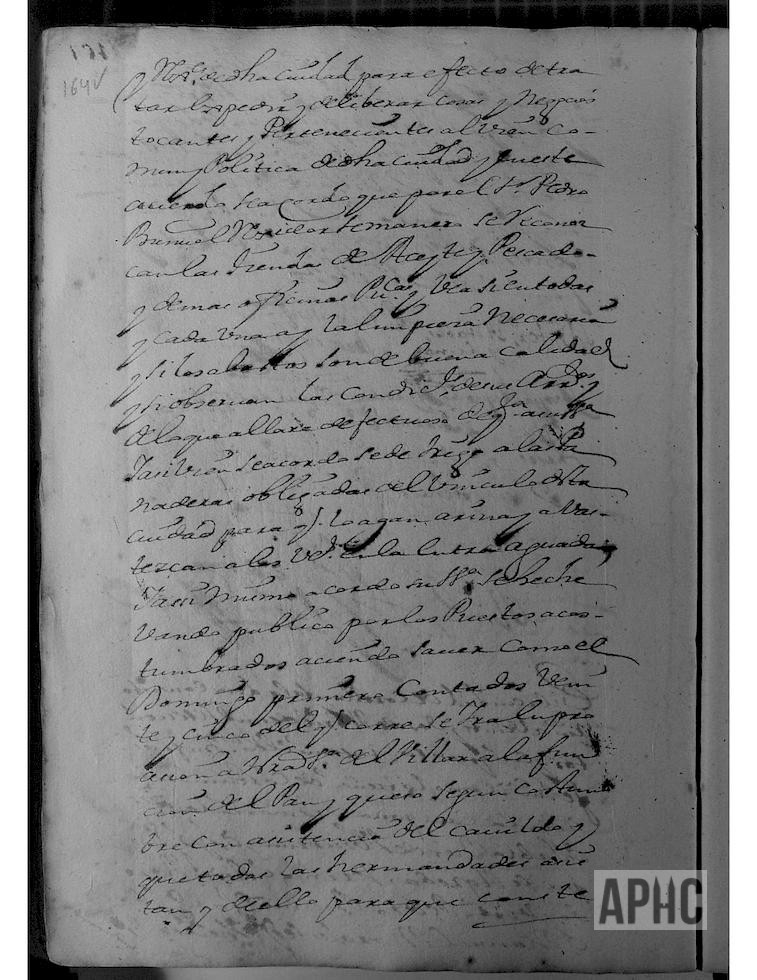 171
164v
y Nra. de dha ciudad para efecto de tra
tar expedir y deliberar cosas y negocios
tocantes y Pertenecientes al vien Co-
mun y Politica de dha ciudad y en este
acuerdo se acordo que por el Sr. Pedro
Buñuel Rexidor semanero se reconoz
can las tiendas de Aceyte y Pescado-
y demas oficinas Pucas y vea si en todas
y cada una ay la limpieza Necesaria
y si los abastos son de buena calidad
y si observan las Condics. de sus Arrdos y
de lo que allare defectuoso de qta a su Ssa
Tasi vien se acordo se de trigo a las Pa
naderas obligadas del Vinculo desta
ciudad para q. lo agan arina y avas-
tezcan a los Vs. en la
Tasi mismo acordo su Ssa. se heche
vando publico por los Puestos acos-
tumbrados aciendo saver como el
Domingo primero Contados Vein
te y cinco del q. corre se Ira en pro
acion a Nra Sa. del Villar a la fun
cion del Pan y queso segun costum
bre con asistencia del cavildo y
que todas las hermandades asis
tan y de ello para que conste
APHC